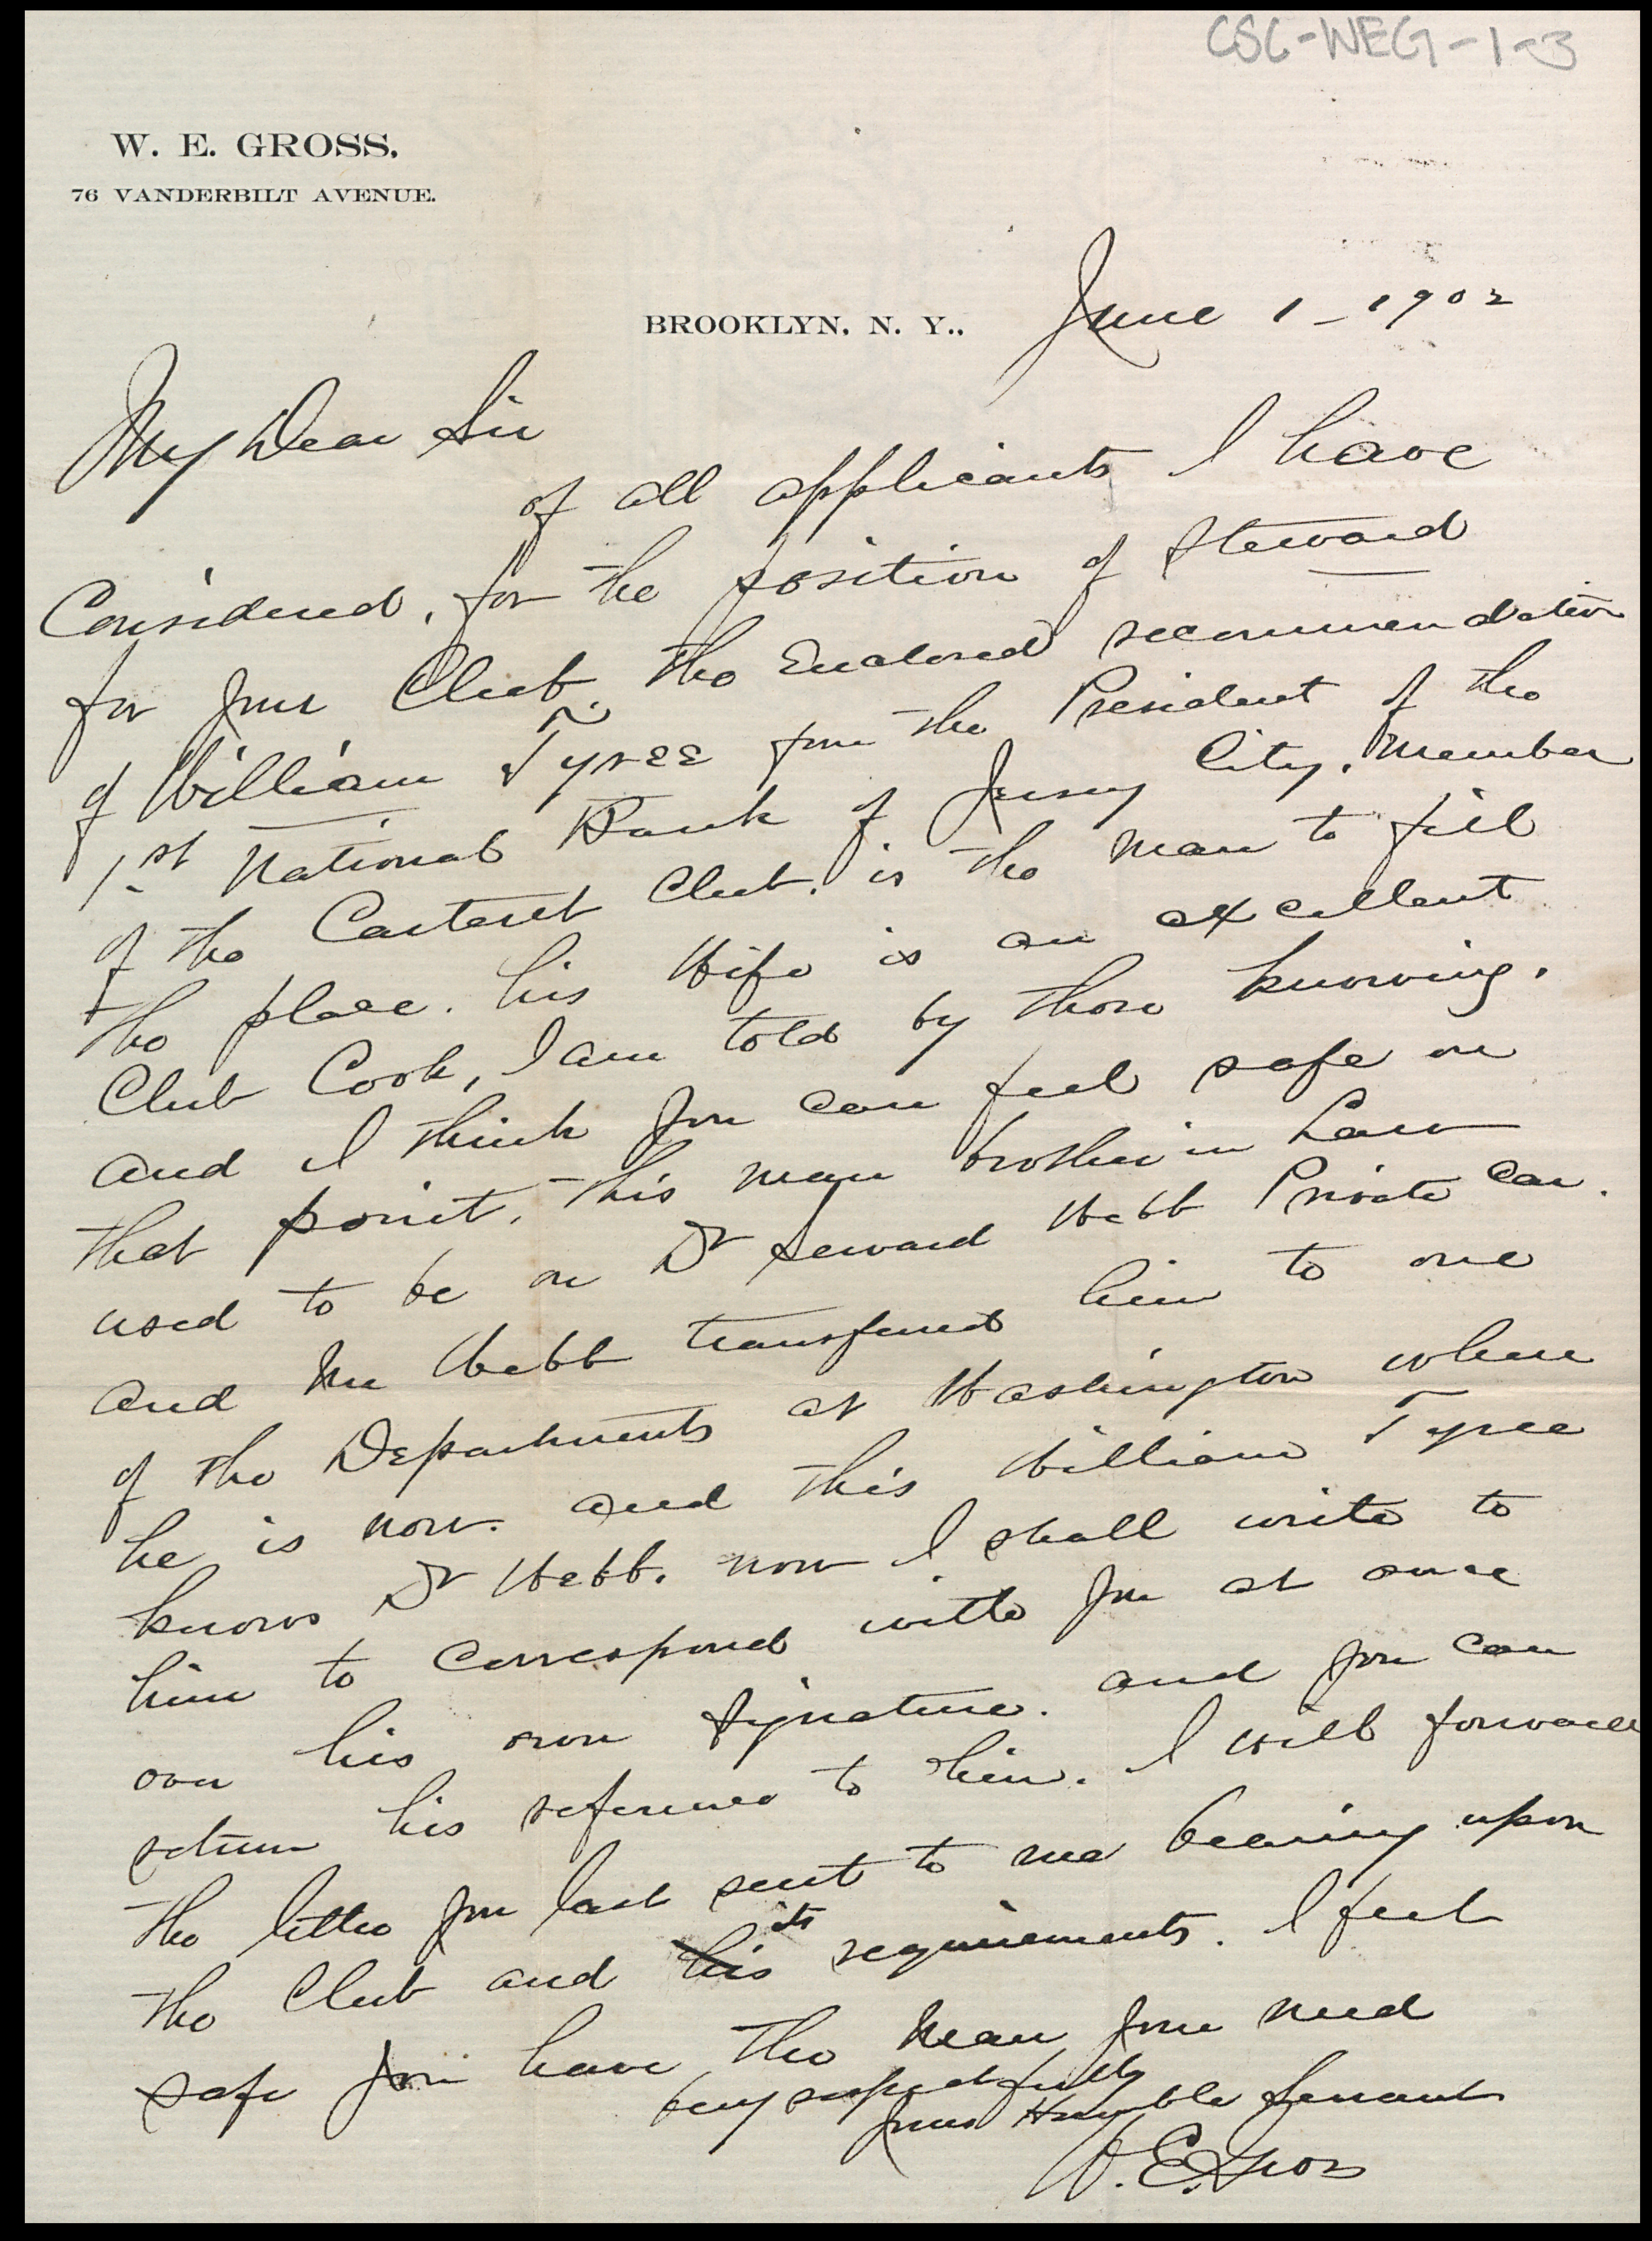 CSC-WEG-1-3
W. E. GROSS,
76 VANDERBILT AVENUE.
BROOKLYN, N. Y.,  June 1 - 1902
My Dear Sir
of all applicants I have
Considered, for the position of Steward
for your Club. The Enclosed recommendation
of William Tyree from the President of the
1st National Bank of Jersey City. Member
of the Carteret Club. is the man to fill
the place. his Wife is an excellent
Club Cook, I am told by those knowing.
and I think you can feel safe on
that point. This man brother in Law
used to be on Dr Seward Webb Private Car.
and Mr Webb transfered him to one
of the Departments at Washington where
he is now. and this William Tyree
knows Dr Webb. now I shall write to
him to Correspond with you at once
over his own signature. and you can
return his reference to him. I will forward
the letter you last sent to me bearing upon
the Club and his its requirements. I feel
safe you have the man you need
very respectfully
your Humble Servant
W. E. Gross